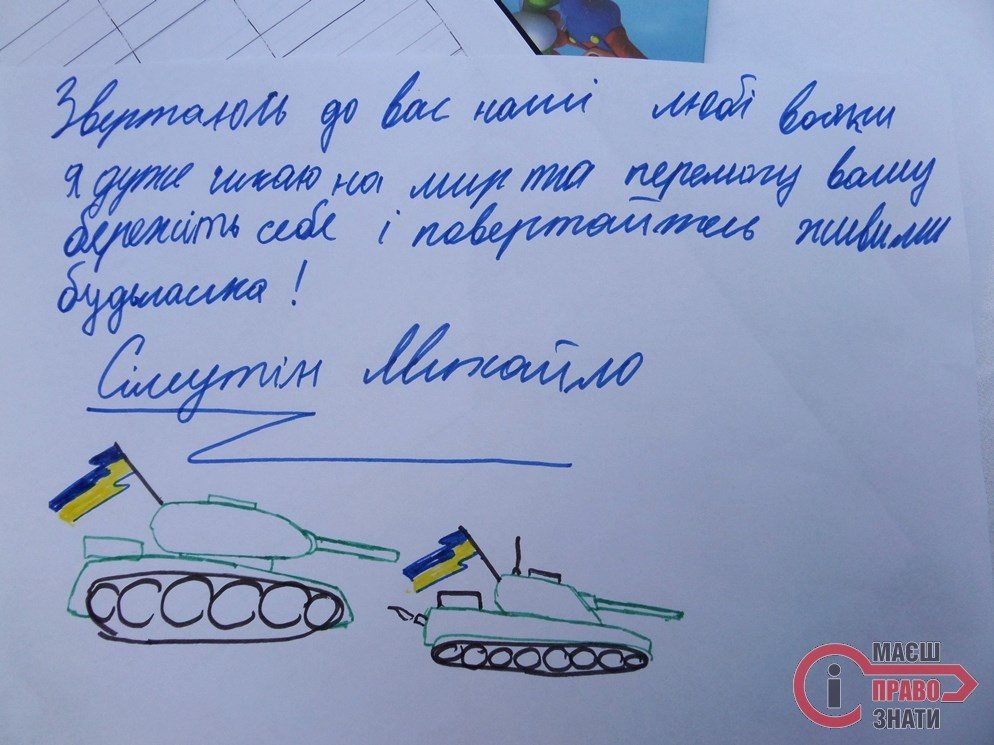 Звертаюсь до вас наші любі вояки
я дуже чикаю на мир та перемогу вашу
бережіть себе і повертайтесь живими
будьласка!
Сімутін Михайло
МАЄШ
ПРАВО
ЗНАТИ